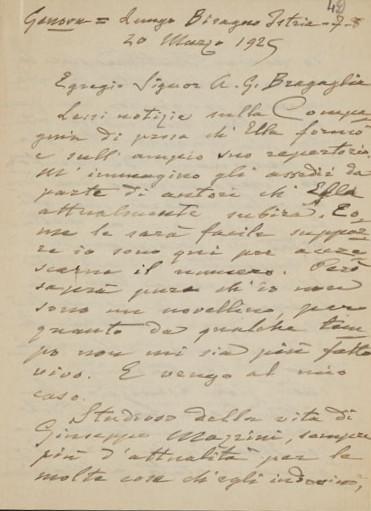 42
Genova = Lungo Bisagno Istria = 7-8
20 Marzo 1925
Egregio Signor A. G. Bragaglia
Lessi notizie sulla Compa
gnia di prosa ch'Ella formò
e sull'ampio suo repertorio.
M'immagino gli assedii da
parte di autori ch'Ella
attualmente subirà. Co-
me le sarà facile suppor-
re io sono qui per accre-
scerne il numero. Però
saprà pure ch'io non
sono un novellino, per
quanto da qualche tem-
po non mi sia più fatto
vivo. E vengo al mio
caso.
Studioso della vita di
Giuseppe Mazzini, sempre
più d'attualità per le
molte cose ch'egli indovinò,